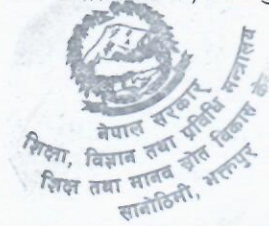 नेपाल सरकार
शिक्षा, विज्ञान तथा प्रविधि मन्त्रालय
शिक्षा तथा मानव स्रोत विकास के
सानोठिमी, भक्तपुर